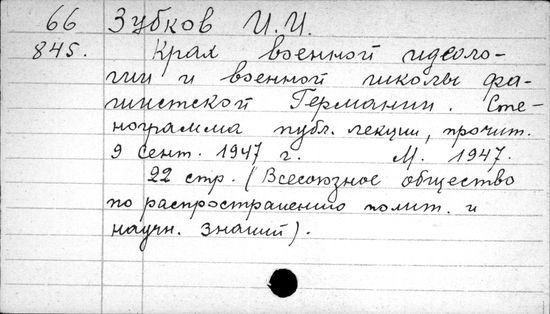 66 Зубков И.И.
845. Крах военной идеоло-
гии и военной школы фа-
шистской Германии. Сте-
нограмма публ. лекции, прочит.
9 сент. 1947 г. М. 1947.
22 стр. (Всесоюзное общество
по распространению полит. и
научн. знаний).